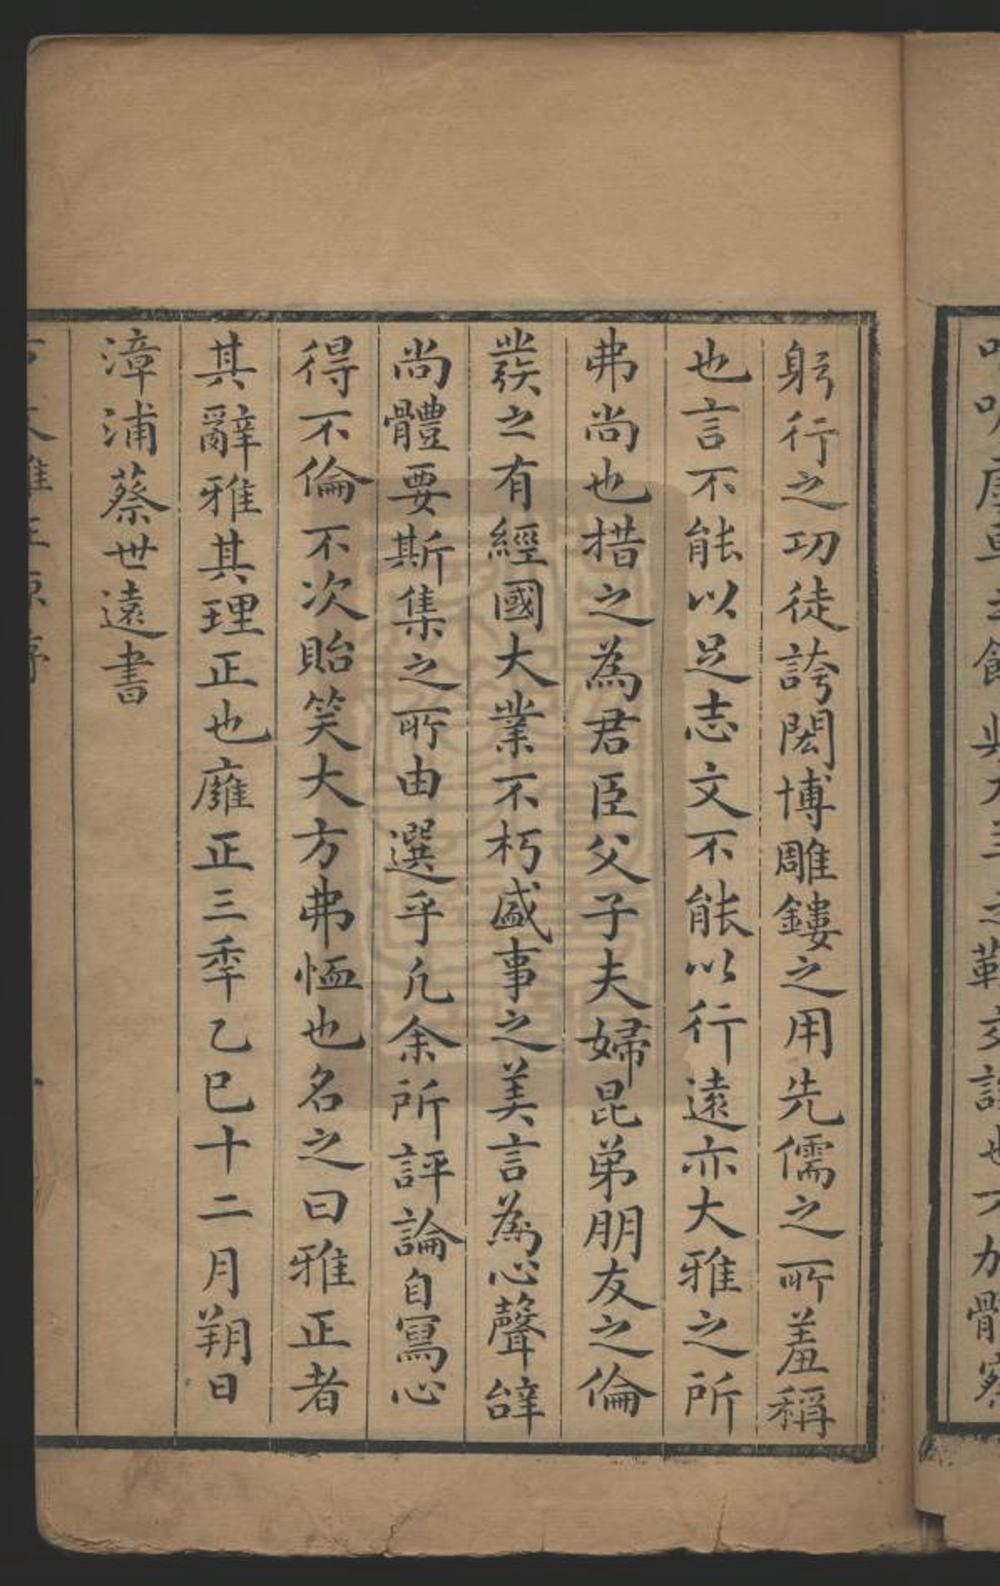 躬行之功徒誇閎博雕鏤之用先儒之所羞稱
也言不能以足志文不能以行遠亦大雅之所
弗尚也措之為君臣父子夫婦昆弟朋友之倫
發之有經國大業不朽盛事之美言為心聲辭
尚體要斯集之所由選乎凡余所評論自寫心
得不倫不次貽笑大方弗恤也名之曰雅正者
其辭雅其理正也雍正三年乙巳十二月朔日
漳浦蔡世遠書